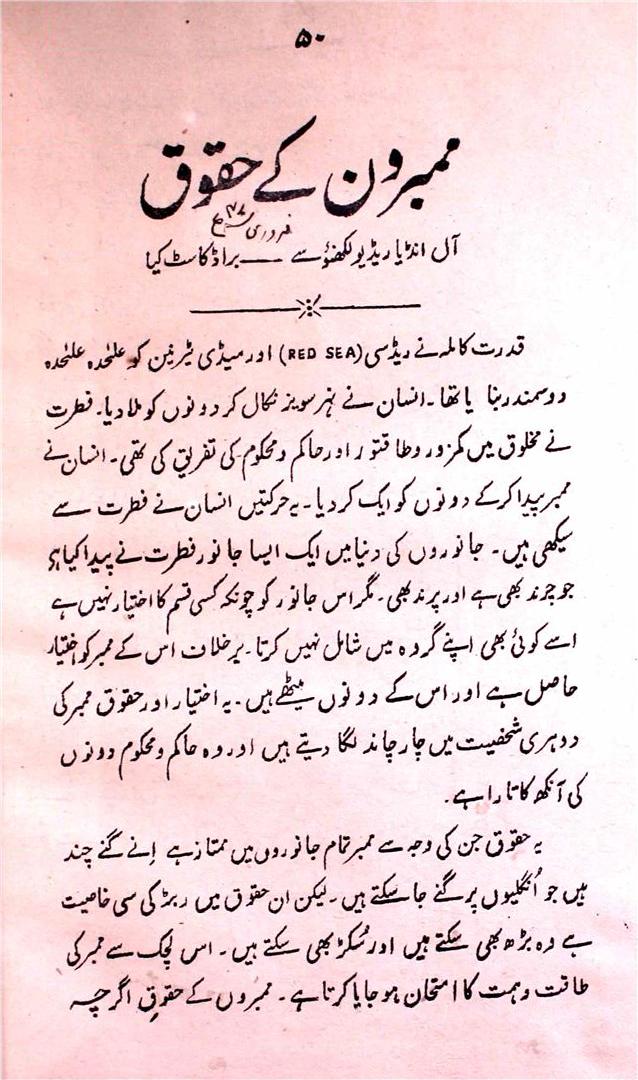 ۵۰
ممبرون کے حقوق
فروری ۴۷ء
آل انڈیا ریڈیو لکھنؤ سے — براڈ کاسٹ کیا
قدرت کاملہ نے ریڈسی (RED SEA) اور میڈی ٹرینین کو علٰحدہ علٰحدہ
دو سمندر بنا یا تھا۔ انسان نے نہر سویز نکال کر دونوں کو ملا دیا۔ فطرت
نے مخلوق میں کمزور وطاقتور اور حاکم ومحکوم کی تفریق کی تھی۔ انسان نے
ممبر پیدا کر کے دونوں کو ایک کر دیا۔ یہ حرکتیں انسان نے فطرت سے
سیکھی ہیں۔ جانوروں کی دنیا میں ایک ایسا جانور فطرت نے پیدا کیا ہے
جو چرند بھی ہے اور پرند بھی۔ مگر اس جانور کو چونکہ کسی قسم کا اختیار نہیں ہے
اسے کوئی بھی اپنے گروہ میں شامل نہیں کرتا۔ برخلاف اس کے ممبر کو اختیار
حاصل ہے اور اس کے دونوں میٹھے ہیں۔ یہ اختیار اور حقوق ممبر کی
دوہری شخصیت میں چار چاند لگا دیتے ہیں اور وہ حاکم ومحکوم دونوں
کی آنکھ کا تارا ہے۔
یہ حقوق جن کی وجہ سے ممبر تمام جانوروں میں ممتاز ہے اِنے گنے چند
ہیں جو اُنگلیوں پر گنے جا سکتے ہیں۔ لیکن ان حقوق میں ربڑ کی سی خاصیت
ہے وہ بڑھ بھی سکتے ہیں اور سُکڑ بھی سکتے ہیں۔ اس لچک سے ممبر کی
طاقت وہمت کا امتحان ہو جایا کرتا ہے۔ ممبروں کے حقوق اگرچہ